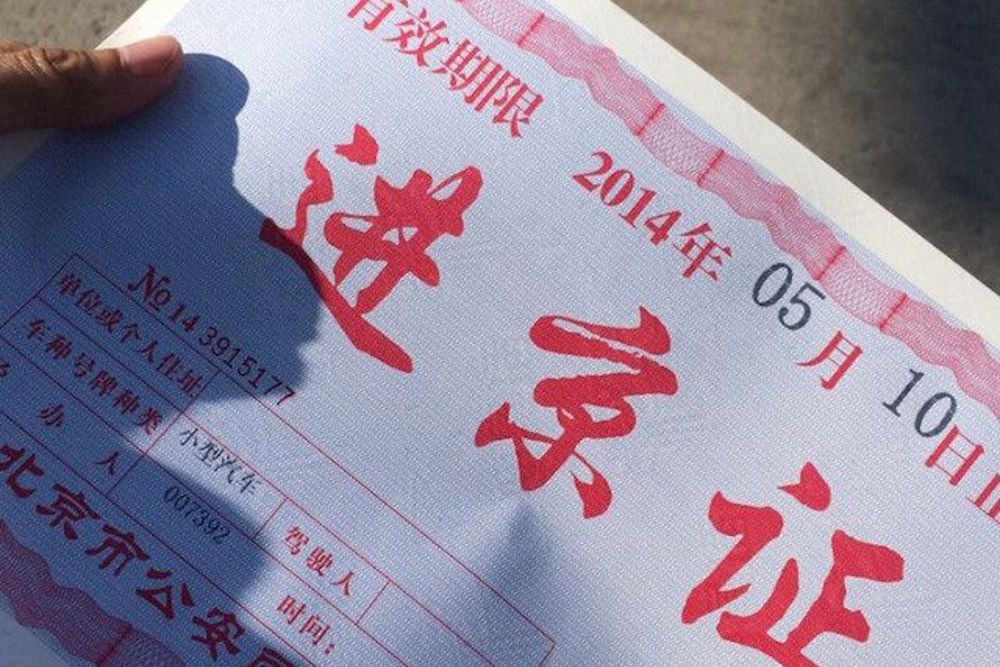 有效期限 2014年 05月 10日止
进京证
No 14 3915177
单位或个人住址
车种号牌种类 小型汽车
办人 007392 驾驶人
时间:
北京市公安局